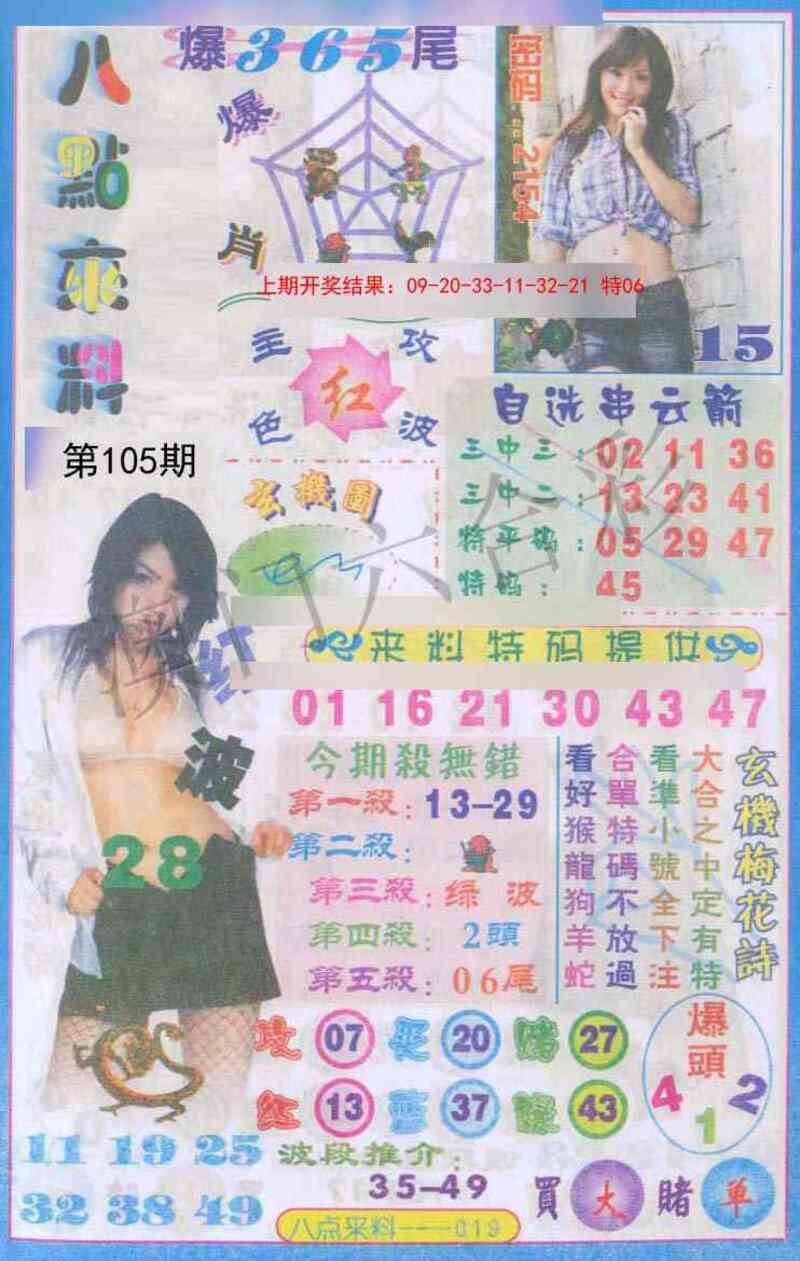 爆365尾
八點來料
爆肖
密码:2154
15
上期开奖结果：09-20-33-11-32-21 特06
主攻
红
色波
自选串云箭
三中三：02 11 36
三中二：13 23 41
特平码：05 29 47
特码：45
第105期
玄機圖
红波
28
来料特码提供
01 16 21 30 43 47
今期殺無錯
第一殺：13-29
第二殺：
第三殺：绿波
第四殺：2頭
第五殺：06尾
玄機梅花詩
大合之中定有特
看準小號全下注
合單特碼不放過
看好猴龍狗羊蛇
攻 07 买 20 赌 27
红 13 蓝 37 绿 43
爆頭
4 1 2
11 19 25
32 38 49
波段推介：
35-49
買 大 賭 单
八点来料---019